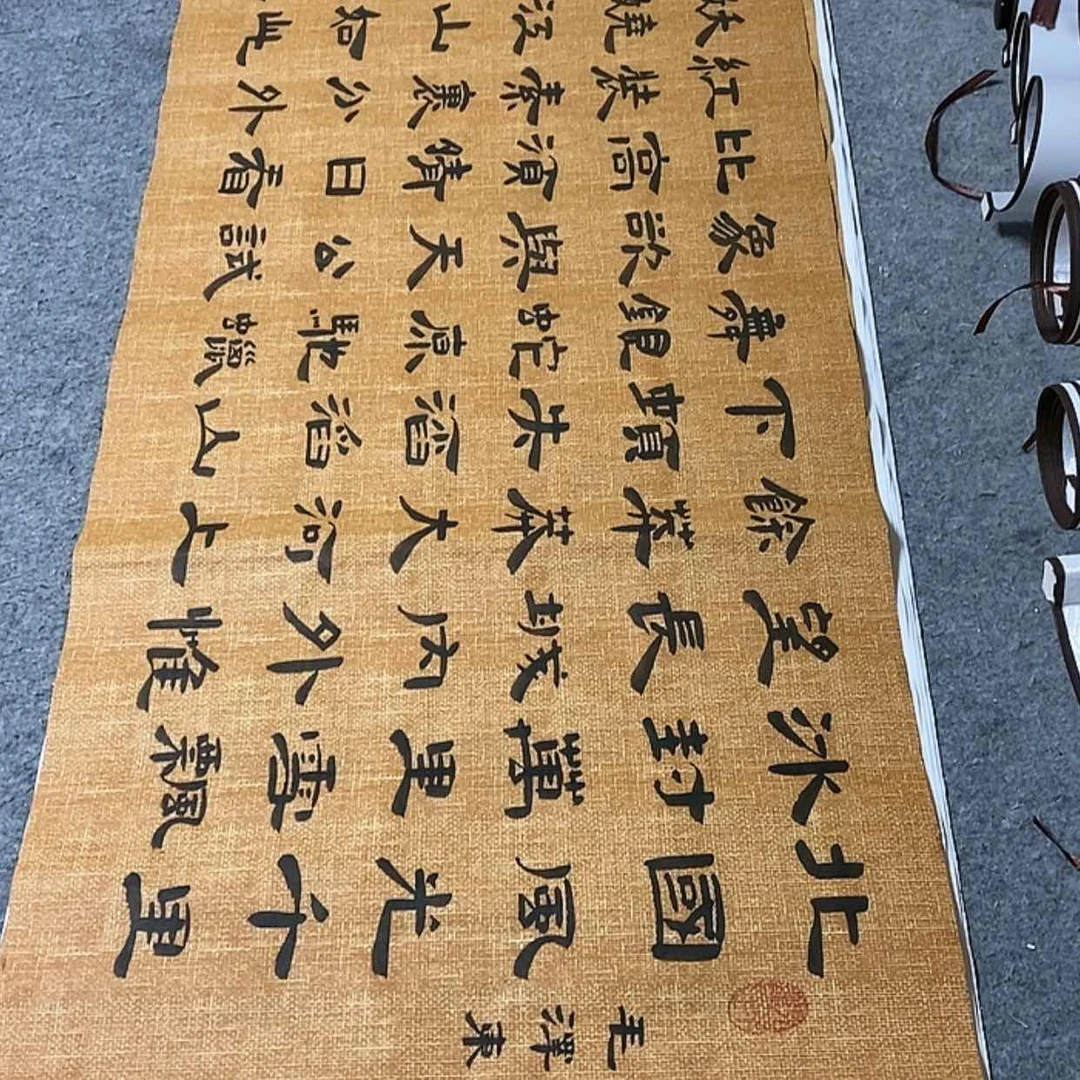 毛澤東
北國風光千里
冰封萬里雪飄
望長城內外惟
餘莽莽大河上
下頓失滔滔山
舞銀蛇原馳蠟
象欲與天公試
比高須晴日看
紅裝素裹分外
妖嬈江山如此